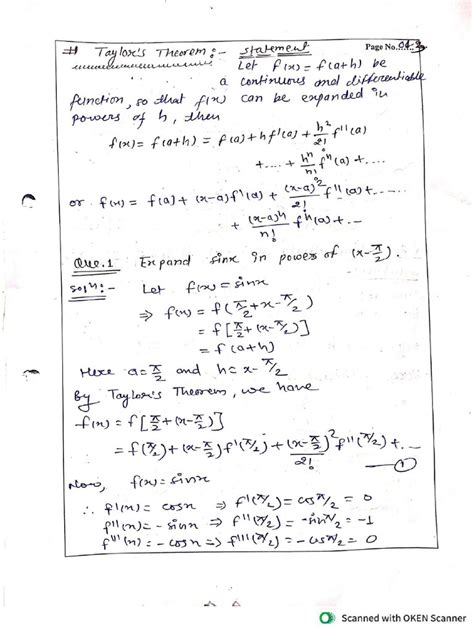 # Taylor's Theorem :- statement Page No. 04-3
Let f(x) = f(a+h) be
a continuous and differentiable
function, so that f(x) can be expanded in
powers of h, then
f(x) = f(a+h) = f(a) + h f'(a) + h²/2! f''(a)
+ .... + hⁿ/n! fⁿ(a) + ....
or f(x) = f(a) + (x-a) f'(a) + (x-a)²/2! f''(a) + ....
+ (x-a)ⁿ/n! fⁿ(a) + ..
Que.1 Expand sinx in powers of (x-π/2).
Solⁿ:- Let f(x) = sinx
⇒ f(x) = f(π/2 + x - π/2)
= f[π/2 + (x-π/2)]
= f(a+h)
Here a = π/2 and h = x - π/2
By Taylor's Theorem, we have
f(x) = f[π/2 + (x-π/2)]
= f(π/2) + (x-π/2) f'(π/2) + (x-π/2)²/2! f''(π/2) + ...
—①
Now, f(x) = sinx
∴ f'(x) = cosx ⇒ f'(π/2) = cosπ/2 = 0
f''(x) = -sinx ⇒ f''(π/2) = -sinπ/2 = -1
f'''(x) = -cosx ⇒ f'''(π/2) = -cosπ/2 = 0
Scanned with OKEN Scanner